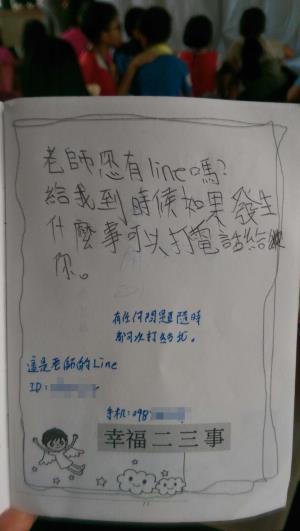 老師您有line嗎?
給我到時候如果發生
什麼事可以打電話給
你。
有任何問題隨時
都可以打給我。
這是老師的Line
ID:
手机:098
幸福二三事